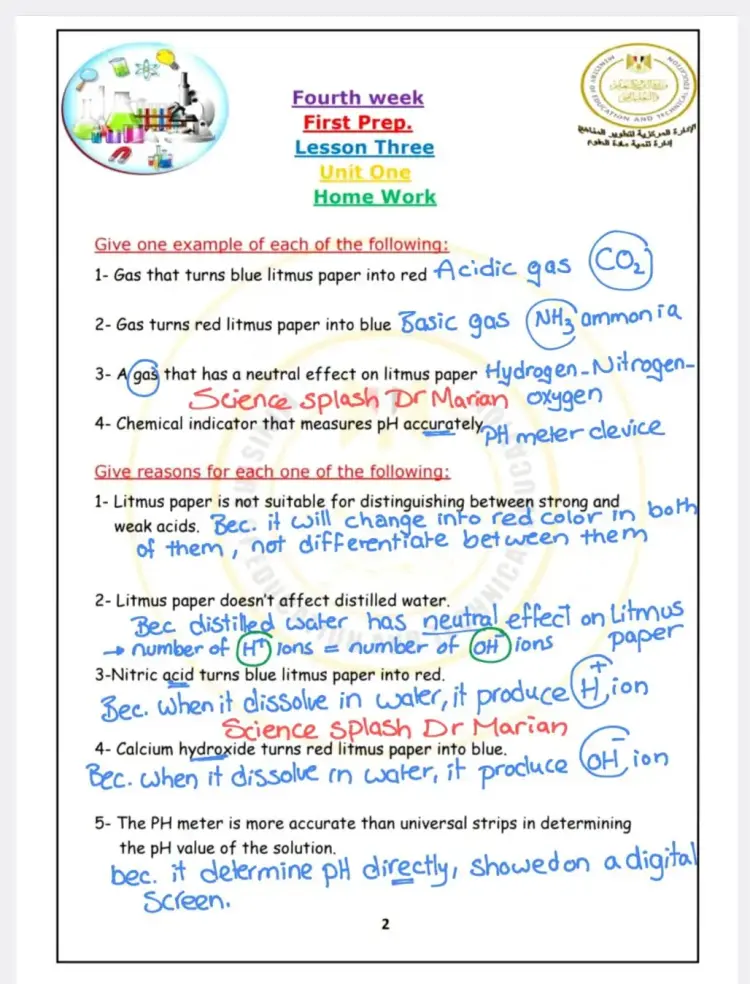 Fourth week
First Prep.
Lesson Three
Unit One
Home Work
MINISTRY OF EDUCATION AND TECHNICAL EDUCATION
الإدارة المركزية لتطوير المناهج
إدارة تنمية مادة العلوم
Give one example of each of the following:
1- Gas that turns blue litmus paper into red Acidic gas CO₂
2- Gas turns red litmus paper into blue Basic gas NH₃ ammonia
3- A gas that has a neutral effect on litmus paper Hydrogen-Nitrogen-
Science splash Dr Marian oxygen
4- Chemical indicator that measures pH accurately PH meter device
Give reasons for each one of the following:
1- Litmus paper is not suitable for distinguishing between strong and
weak acids. Bec. it will change into red color in both
of them, not differentiate between them
2- Litmus paper doesn't affect distilled water.
Bec distilled water has neutral effect on Litmus
paper
→ number of H⁺ ions = number of OH⁻ ions
3-Nitric acid turns blue litmus paper into red.
Bec. when it dissolve in water, it produce H⁺ ion
Science splash Dr Marian
4- Calcium hydroxide turns red litmus paper into blue.
Bec. when it dissolve in water, it produce OH⁻ ion
5- The PH meter is more accurate than universal strips in determining
the pH value of the solution.
bec. it determine pH directly, showed on a digital
screen.
2